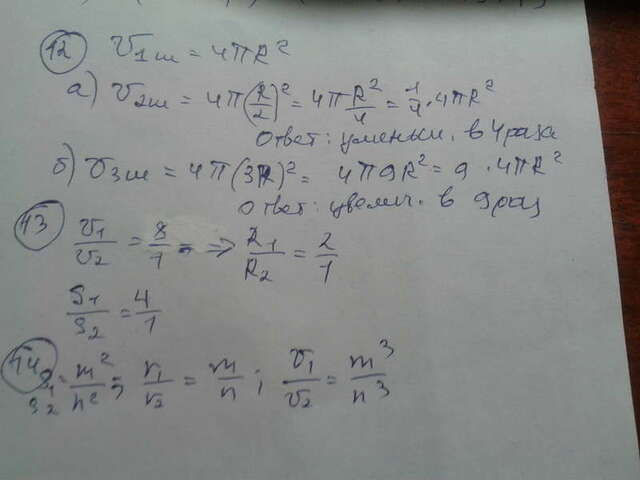 12 V₁ш = 4πR²
а) V₂ш = 4π(R/2)² = 4π R²/4 = 1/4 · 4πR²
Ответ: уменьш. в 4 раза
б) V₃ш = 4π(3R)² = 4π9R² = 9 · 4πR²
Ответ: увелич. в 9 раз
13 V₁/V₂ = 8/1 = ⇒ R₁/R₂ = 2/1
S₁/S₂ = 4/1
14 S₁/S₂ = m²/n² ; r₁/r₂ = m/n ; V₁/V₂ = m³/n³